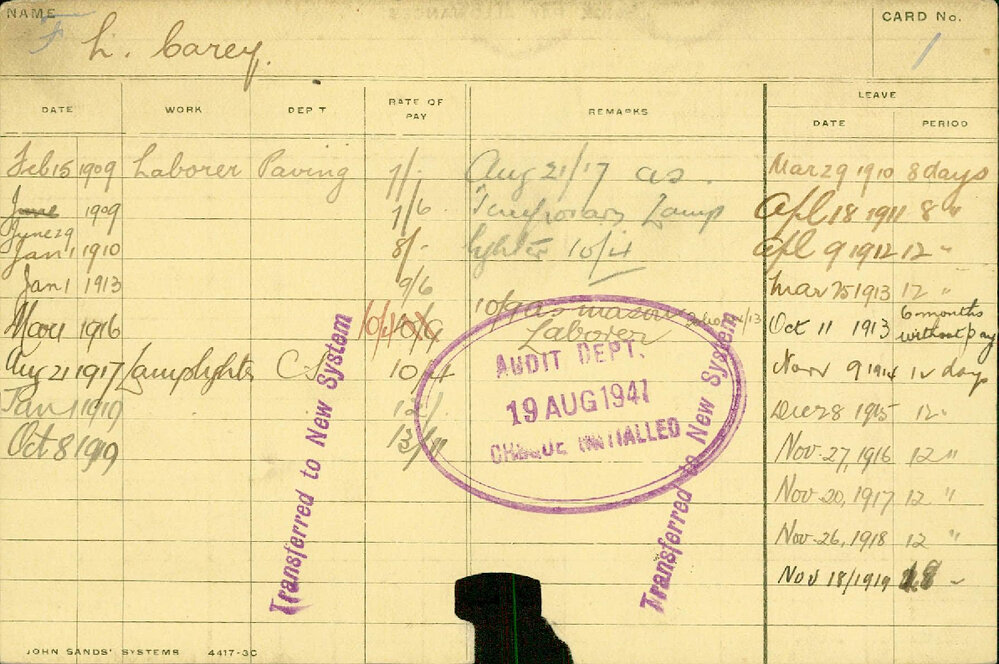 NAME
CARD No.
F L. Carey.
1
DATE WORK DEPT RATE OF PAY REMARKS LEAVE
DATE PERIOD
Feb 15 1909 Laborer Paving 7/- Aug 21/17 as Mar 29 1910 8 days
June 1909 7/6 Temporary Lamp Apl 18 1911 8 "
June 29
Jan 1 1910 8/- lighter 10/4 Apl 9 1912 12 "
Jan 1 1913 9/6 Mar 25 1913 12 "
1916 10/9 as mason's Laborer Oct 11 1913 6 months without pay
Aug 21 1917 Lamplighter 10/4 Nov 9 1914 12 days
Jan 1 1919 12/- Dec 28 1915 12 "
Oct 8 1919 13/11 Nov. 27, 1916 12 "
Nov 20, 1917 12 "
Nov 26, 1918 12 "
Nov 18/1919 18 "
AUDIT DEPT.
19 AUG 1941
CHEQUE INITIALLED
Transferred to New System
Transferred to New System
JOHN SANDS' SYSTEMS 4417-3C